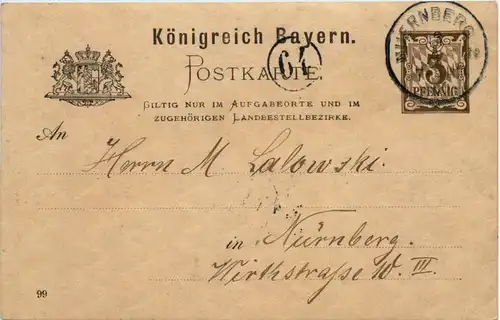 Königreich Bayern.
64
POSTKARTE.
NÜRNBERG
3
PFENNIG
GILTIG NUR IM AUFGABEORTE UND IM
ZUGEHÖRIGEN LANDBESTELLBEZIRKE.
An
Herrn M. Lalowski.
in Nürnberg.
Wirthstraße 10. III.
99